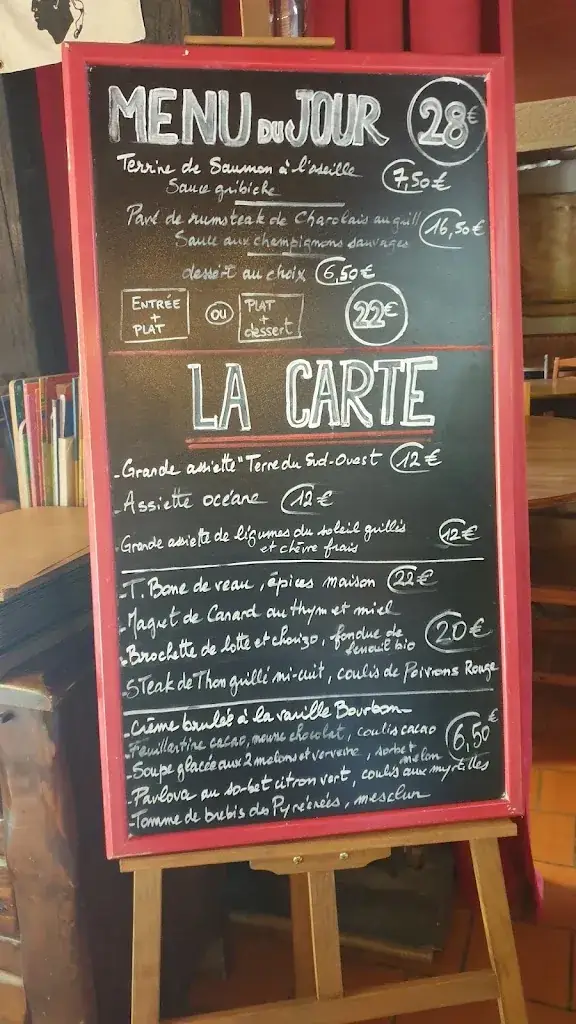 MENU DU JOUR 28€
Terrine de Saumon à l'oseille 7,50€
Sauce gribiche
Pavé de rumsteak de Charolais au grill 16,50€
Sauce aux champignons sauvages
dessert au choix 6,50€
ENTRÉE + PLAT OU PLAT + dessert 22€
LA CARTE
- Grande assiette "Terre du Sud-Ouest 12€
- Assiette océane 12€
- Grande assiette de légumes du soleil grillés 12€
et chèvre frais
- T. Bone de veau, épices maison 22€
- Magret de Canard au thym et miel
- Brochette de lotte et chorizo, fondue de 20€
fenouil bio
- STeak de Thon grillé mi-cuit, coulis de Poivrons Rouge
- Crème brulée à la vanille Bourbon
- Feuillantine cacao, mousse chocolat, coulis cacao 6,50€
- Soupe glacée aux 2 melons et verveine, sorbet
melon
- Pavlova au sorbet citron vert, coulis aux myrtilles
- Tomme de brebis des Pyrénées, mesclun